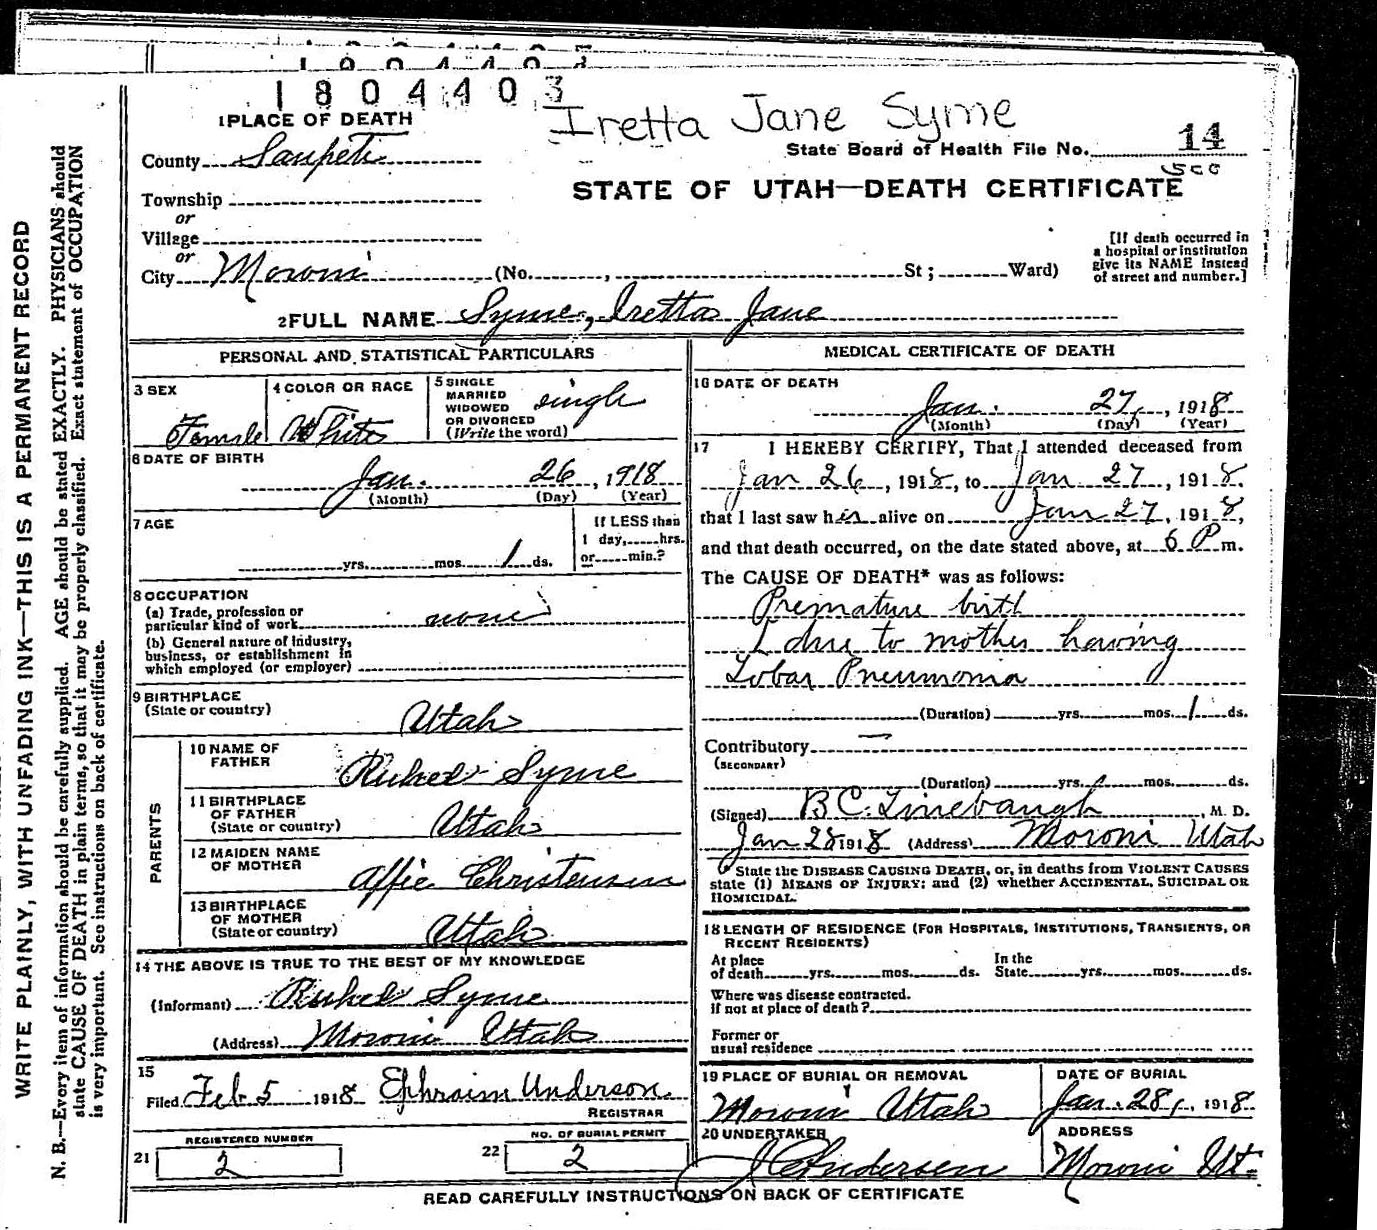 1804403
Iretta Jane Syme
1 PLACE OF DEATH
State Board of Health File No. 14
County Sanpete
STATE OF UTAH—DEATH CERTIFICATE
Township
or
Village
or
City Moroni (No. , St ; Ward)
[If death occurred in
a hospital or institution
give its NAME instead
of street and number.]
2 FULL NAME Syme, Iretta Jane
PERSONAL AND STATISTICAL PARTICULARS
3 SEX
Female
4 COLOR OR RACE
White
5 SINGLE
MARRIED
WIDOWED
OR DIVORCED
(Write the word)
single
6 DATE OF BIRTH
Jan. 26, 1918
(Month) (Day) (Year)
7 AGE
yrs. mos. 1 ds.
If LESS than
1 day, hrs.
or min.?
8 OCCUPATION
(a) Trade, profession or
particular kind of work none
(b) General nature of industry,
business, or establishment in
which employed (or employer)
9 BIRTHPLACE
(State or country)
Utah
PARENTS
10 NAME OF
FATHER
Syme
11 BIRTHPLACE
OF FATHER
(State or country)
Utah
12 MAIDEN NAME
OF MOTHER
Affie Christensen
13 BIRTHPLACE
OF MOTHER
(State or country)
Utah
14 THE ABOVE IS TRUE TO THE BEST OF MY KNOWLEDGE
(Informant) Syme
(Address) Moroni Utah
15
Filed Feb 5 1918 Ephraim Anderson
REGISTRAR
21 REGISTERED NUMBER
2
22 NO. OF BURIAL PERMIT
2
MEDICAL CERTIFICATE OF DEATH
16 DATE OF DEATH
Jan. 27, 1918
(Month) (Day) (Year)
17 I HEREBY CERTIFY, That I attended deceased from
Jan 26, 1918, to Jan 27, 1918.
that I last saw her alive on Jan 27, 1918,
and that death occurred, on the date stated above, at 6 P m.
The CAUSE OF DEATH* was as follows:
Premature birth
due to mother having
Lobar Pneumonia
(Duration) yrs. mos. 1 ds.
Contributory —
(SECONDARY)
(Duration) yrs. mos. ds.
(Signed) B C. Linebaugh, M. D.
Jan 28 1918 (Address) Moroni Utah
* State the DISEASE CAUSING DEATH, or, in deaths from VIOLENT CAUSES
state (1) MEANS OF INJURY; and (2) whether ACCIDENTAL, SUICIDAL OR
HOMICIDAL.
18 LENGTH OF RESIDENCE (FOR HOSPITALS, INSTITUTIONS, TRANSIENTS, OR
RECENT RESIDENTS)
At place
of death yrs. mos. ds.
In the
State yrs. mos. ds.
Where was disease contracted.
if not at place of death?
Former or
usual residence
19 PLACE OF BURIAL OR REMOVAL
Moroni Utah
DATE OF BURIAL
Jan. 28, 1918
20 UNDERTAKER
J C Andersen
ADDRESS
Moroni Ut.
READ CAREFULLY INSTRUCTIONS ON BACK OF CERTIFICATE
WRITE PLAINLY, WITH UNFADING INK—THIS IS A PERMANENT RECORD
N. B.—Every item of information should be carefully supplied. AGE should be stated EXACTLY. PHYSICIANS should
state CAUSE OF DEATH in plain terms, so that it may be properly classified. Exact statement of OCCUPATION
is very important. See instructions on back of certificate.